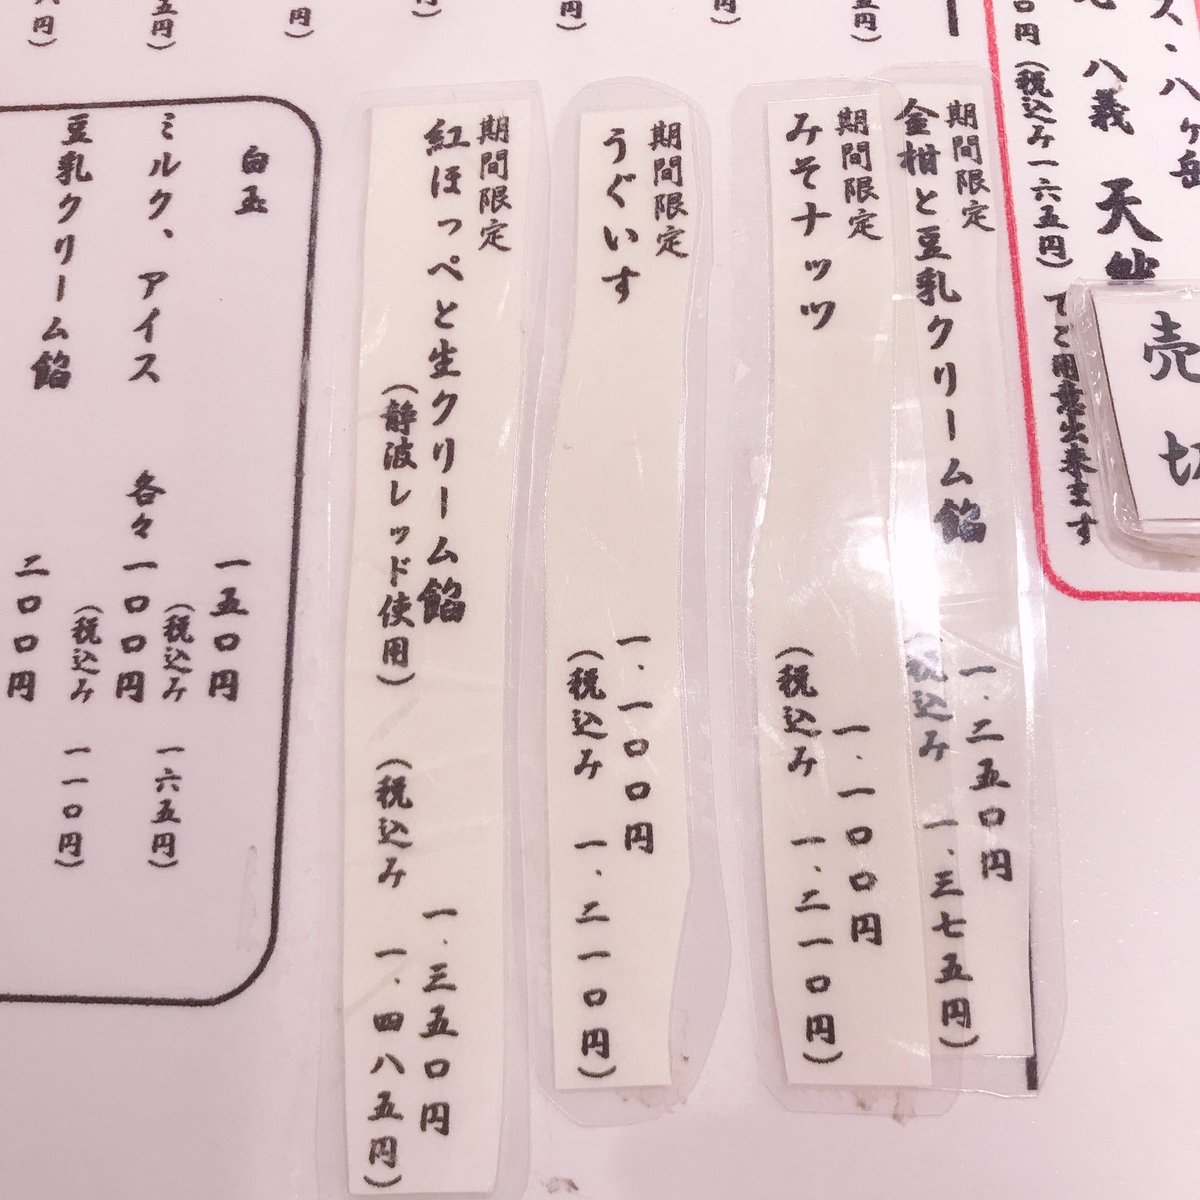 八義 天然
円(税込み一六五円)でご用意出来ます
売切
期間限定
金柑と豆乳クリーム餡
一、二五〇円
(税込み 一、三七五円)
期間限定
みそナッツ
一、一〇〇円
(税込み 一、二一〇円)
期間限定
うぐいす
一、一〇〇円
(税込み 一、二一〇円)
期間限定
紅ほっぺと生クリーム餡
(静波レッド使用)
一、三五〇円
(税込み 一、四八五円)
白玉 一五〇円
(税込み 一六五円)
ミルク、アイス 各々 一〇〇円
(税込み 一一〇円)
豆乳クリーム餡 二〇〇円